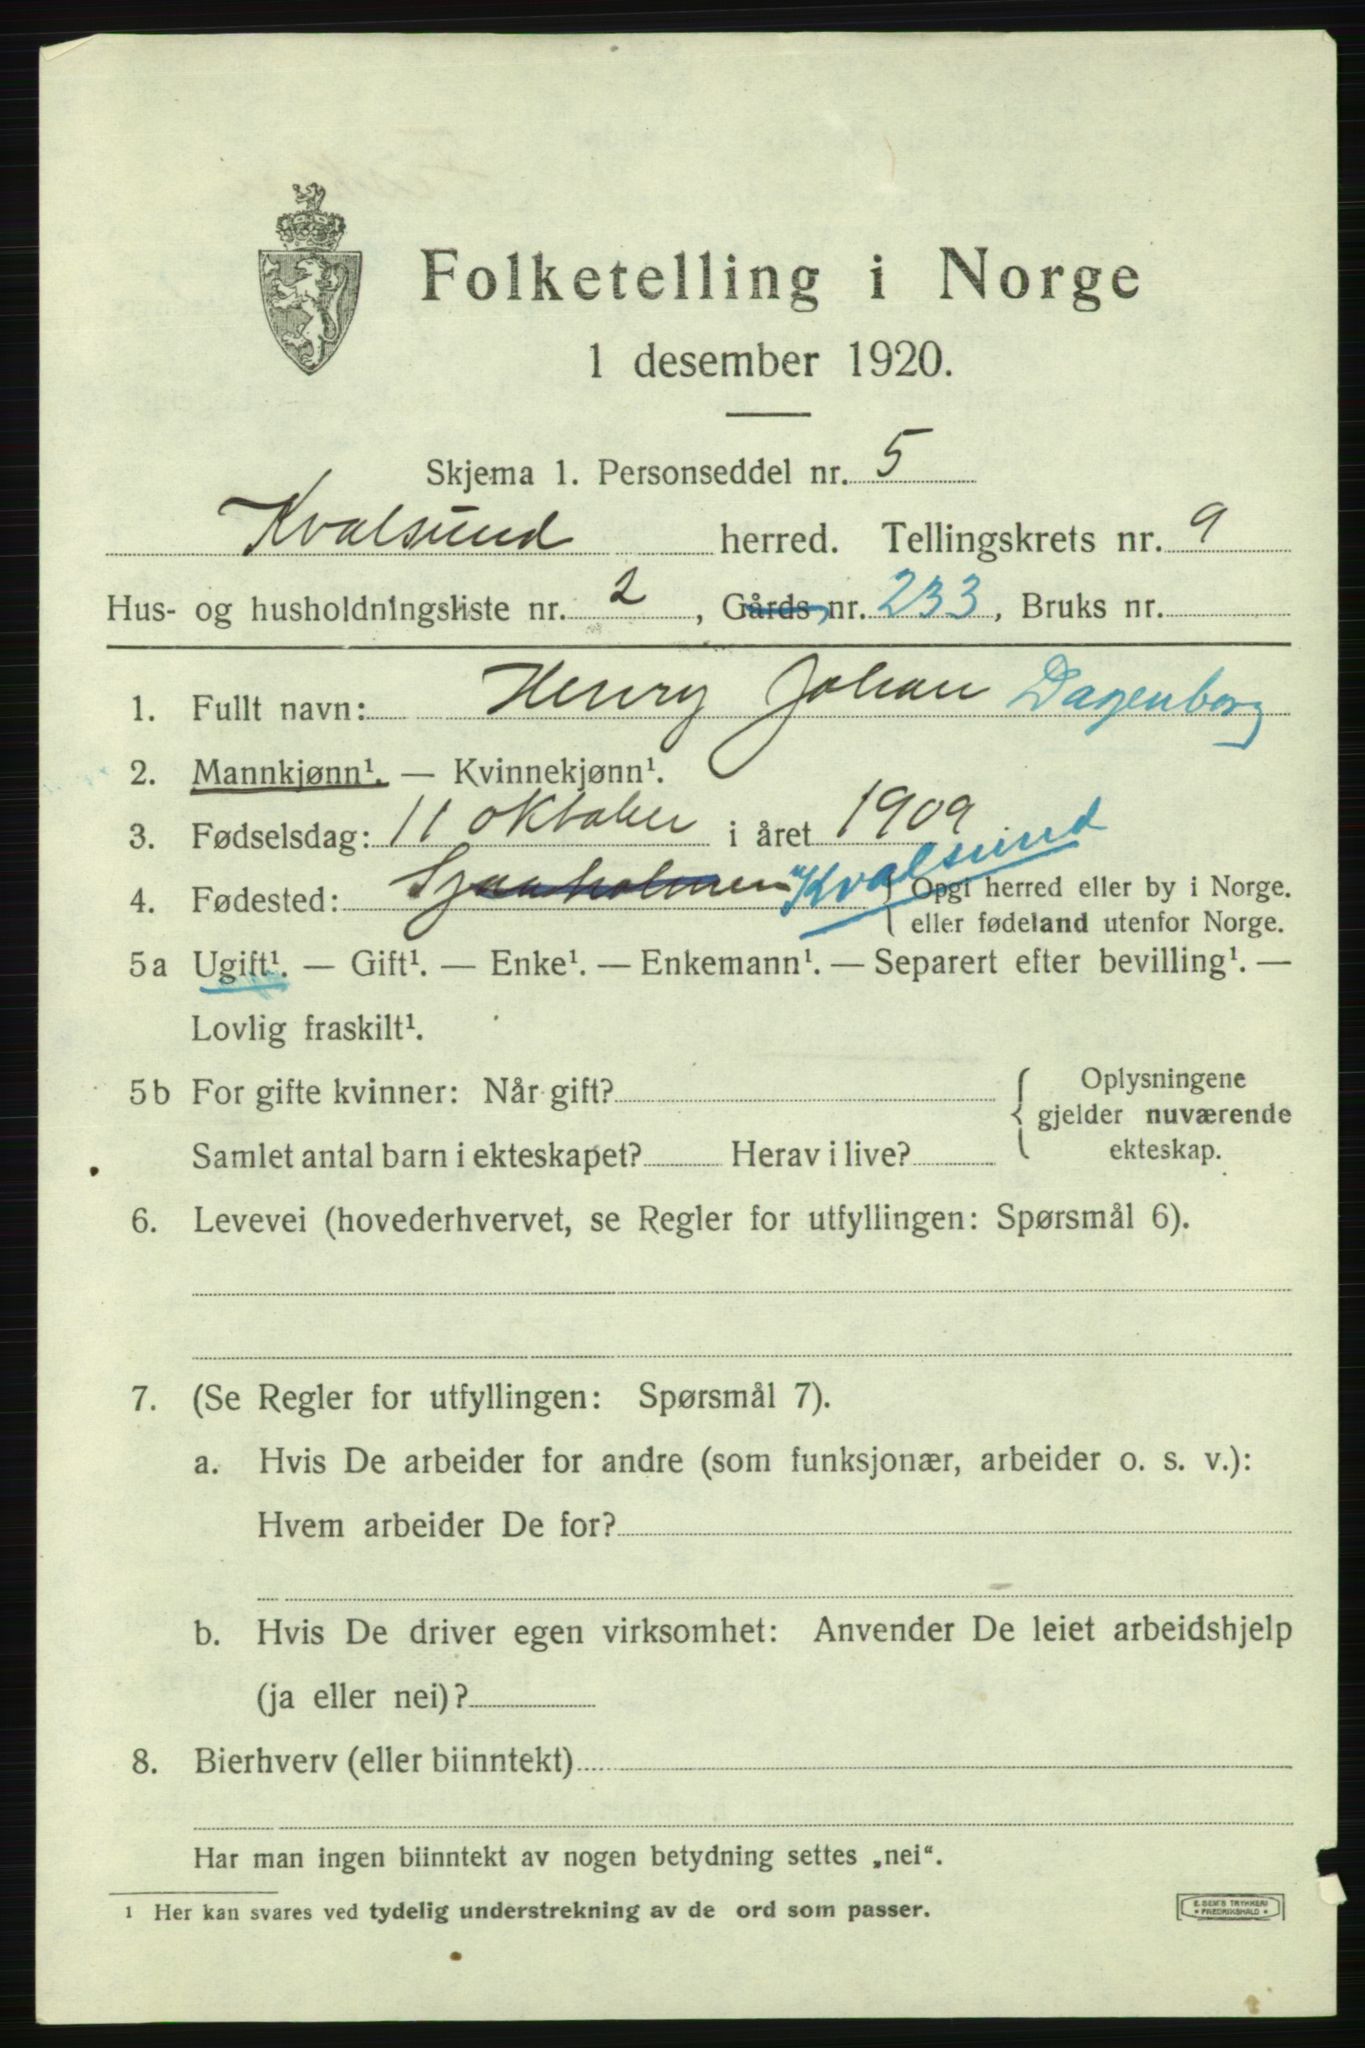 Folketelling i Norge
1 desember 1920.
Skjema 1. Personseddel nr. 5
Kvalsund herred. Tellingskrets nr. 9
Hus- og husholdningsliste nr. 2, Gårds nr. 233, Bruks nr.
1. Fullt navn: Henry Johan Dagenborg
2. Mannkjønn¹. — Kvinnekjønn¹.
3. Fødselsdag: 11 oktober i året 1909
4. Fødested: Kvalsund { Opgi herred eller by i Norge.
eller fødeland utenfor Norge.
5a Ugift¹. — Gift¹. — Enke¹. — Enkemann¹. — Separert efter bevilling¹. —
Lovlig fraskilt¹.
5b For gifte kvinner: Når gift? { Oplysningene
gjelder nuværende
Samlet antal barn i ekteskapet? Herav i live? ekteskap.
6. Levevei (hovederhvervet, se Regler for utfyllingen: Spørsmål 6).
7. (Se Regler for utfyllingen: Spørsmål 7).
a. Hvis De arbeider for andre (som funksjonær, arbeider o. s. v.):
Hvem arbeider De for?
b. Hvis De driver egen virksomhet: Anvender De leiet arbeidshjelp
(ja eller nei)?
8. Bierhverv (eller biinntekt)
Har man ingen biinntekt av nogen betydning settes „nei“.
¹ Her kan svares ved tydelig understrekning av de ord som passer.
E. SEM'S TRYKKERI
* FREDRIKSHALD *